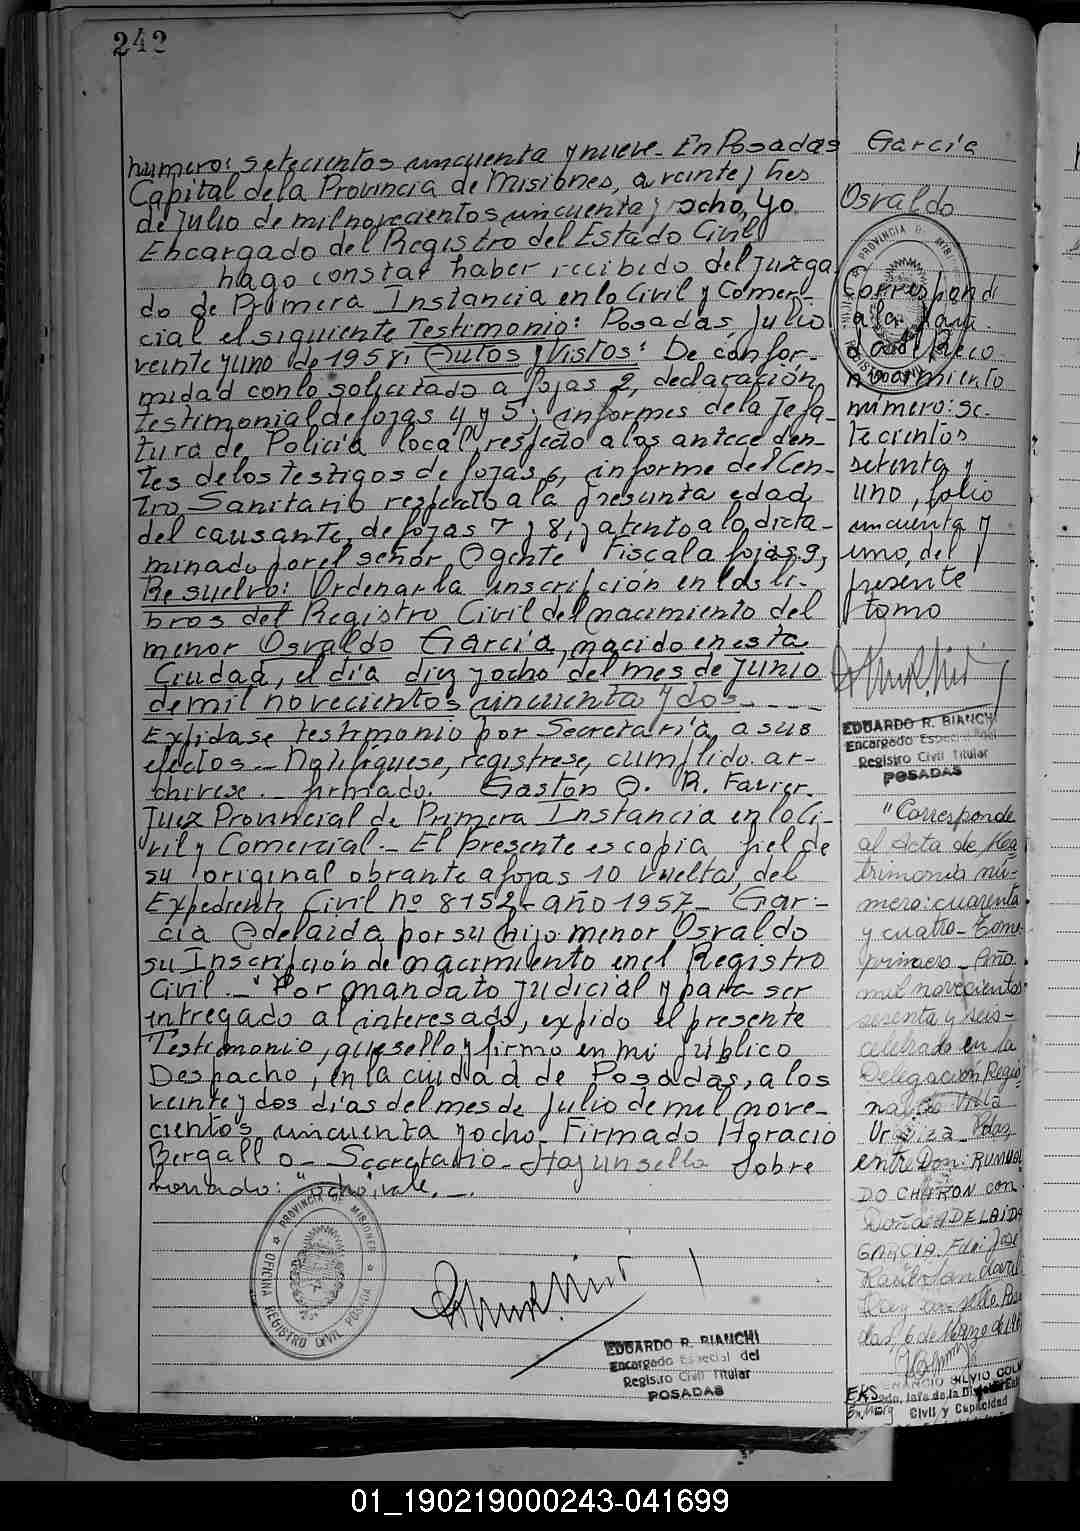 242
número: setecientos cincuenta y nueve_ En Posadas
Capital de la Provincia de Misiones, a veinte y tres
de Julio de mil novecientos cincuenta y ocho, yo
Encargado del Registro del Estado Civil
hago constar haber recibido del Juzga
do de Primera Instancia en lo Civil y Comer-
cial el siguiente Testimonio: Posadas, Julio
veinte y uno de 1958, Autos y Vistos: De confor-
midad con lo solicitado a fojas 2, declaración
testimonial de fojas 4 y 5; informes de la Jefa-
tura de Policia local, respecto a los antece den-
tes de los testigos de fojas 6, informe del Cen-
tro Sanitario respecto a la presunta edad
del causante, de fojas 7 y 8, y atento a lo dicta-
minado por el señor Agente Fiscal a fojas 9,
Resuelvo: Ordenar la inscripción en los li-
bros del Registro Civil del nacimiento del
menor Osvaldo García, nacido en esta
Ciudad, el día diez y ocho del mes de Junio
de mil novecientos cincuenta y dos_
Expídase testimonio por Secretaría a sus
efectos._ Notifíquese, regístrese, cumplido ar-
chívese._ firmado. Gastón A. R. Favier.
Juez Provincial de Primera Instancia en lo Ci-
vil y Comercial._ El presente es copia fiel de
su original obrante a fojas 10 vuelta, del
Expediente Civil nº 8152_ año 1957_ Gar-
cía Adelaida por su hijo menor Osvaldo
su Inscripción de nacimiento en el Registro
Civil._" Por mandato judicial y para ser
entregado al interesado, expido el presente
Testimonio, que sello y firmo en mi público
Despacho, en la ciudad de Posadas, a los
veinte y dos días del mes de Julio de mil nove-
cientos cincuenta y ocho_ Firmado Horacio
Bergallo_ Secretario_ Hay un sello Sobre
rronado: "ocho", vale._
PROVINCIA DE MISIONES
OFICINA REGISTRO CIVIL POSADA
EDUARDO R. BIANCHI
Encargado Especial del
Registro Civil Titular
POSADAS
García
Osvaldo
PROVINCIA DE
Correspond
a la
número: se-
tecientos
setenta y
uno, folio
cincuenta y
uno, del
presente
tomo
EDUARDO R. BIANCHI
Encargado Especial del
Registro Civil Titular
POSADAS
"Corresponde
al Acta de Ma
trimonio nú-
mero: cuarenta
y cuatro_ Tomo
primero_ Año
mil novecientos
sesenta y seis_
celebrado en la
Delegación Regio
nal de Villa
Urquiza_ Pdas,
entre Don: RUMUAL
DO CHIRON con
Doña ADELAIDA
GARCIA.
6 de Marzo de
SILVIO
Civil y Capacidad
EKS
01_190219000243-041699